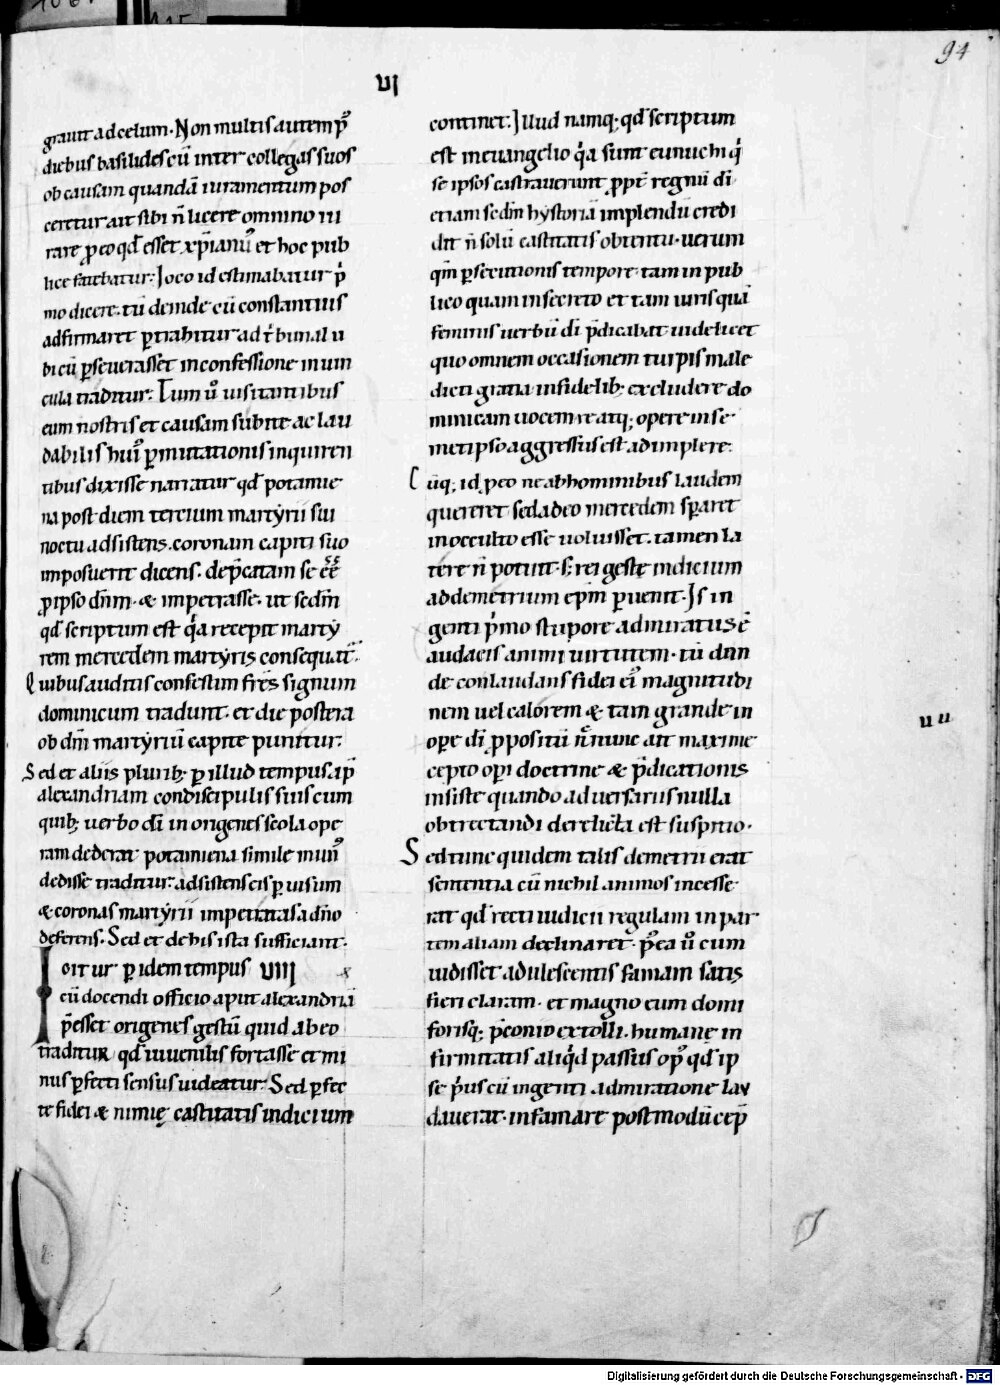 94
VI
grauit ad celum. Non multis autem p̄
diebus basilides cū inter collegas suos
ob causam quandā iuramentum pos
ceretur ait sibi n̄ licere omnino iu
rare ꝓ eo qđ esset xp̄ianus et hoc pub
lice fatebatur. Ioco id estimabatur p̄
mo dicere. tū deinde cū constantius
adfirmaret ꝑtrahitur ad tͥbunal u
bi cū ꝑseuerasset in confessione in uin
cula traditur. Tum u͛ uisitantibus
eum nostris et causam subite ac lau
dabilis hui᾽ ꝑmutationis inquiren
tibus dixisse narratur qđ potamie
na post diem tercium martyrii sui
noctu adsistens. coronam capiti suo
imposuerit dicens. dep̄catam se ēē
ꝓ ipso dn̄m. & impetrasse. ut scdm̄
qđ scriptum est qͥa recepit marty
rem mercedem martyris consequat᾽.
Quibus auditis confestim fr̄es signum
dominicum tradunt. et die postera
ob dn̄i martyriū capite punitur.
Sed et aliis plurib; ꝑ illud tempus ap̄
alexandriam condiscipulis suis cum
quib; uerbo dī in origenes scola ope
ram dederat potamiena simile mun᾽
dedisse traditur. adsistens eis ꝑ uisum
& coronas martyrii impetratas a dn̄o
deferens. Sed et de his ista sufficiant.
IGITUR ꝑ idem tempus VIII
cū docendi officio aput alexandriā
p̄esset origenes gestū quid ab eo
traditur qđ iuuenilis fortasse et mi
nus ꝑfecti sensus uideatur. Sed ꝑfec
te fidei & nimię castitatis indicium
continet. Illud namq; qđ scriptum
est in euangelio qͥa sunt eunuchi qͥ
se ipsos castrauerunt ꝓpt̄ regnū dī
etiam scdm̄ hystoriā implendū credi
dit n̄ solū castitatis obtentu. uerum
qm̄ ꝑsecutionis tempore. tam in pub
lico quam in secreto et tam uiris quā
feminis uerbū dī p̄dicabat uidelicet
quo omnem occasionem turpis male
dicti gratia infidelib; excludere do
minicam uocem re atq; opere in se
metipso aggressus est adimplere.
Cūq; id ꝓ eo ne ab hominibus laudem
quereret sed a deo mercedem sꝑaret
in occulto esse uoluisset. tamen la
tere n̄ potuit. s; rei gestę indicium
ad demetrium ep̄m ꝑuenit. Is in
genti pͥmo stupore admiratus ē
audacis animi uirtutem. tū dein
de conlaudans fidei ei᾽ magnitudi
nem uel calorem & tam grande in
oꝑe dī ꝓpositū n̄ nunc ait maxime
cepto oꝑi doctrine & p̄dicationis
insiste quando aduersariis nulla
obtrectandi derelicta est suspitio.
Sed tunc quidem talis demetrii erat
sententia cū nichil animos incesse
rat qđ recti iudicii regulam in par
tem aliam declinaret. p̄ ea u͛ cum
uidisset adulescentis famam satis
fieri claram. et magno eum domi
forisq; p̄conio extolli. humanę in
firmitatis aliqͥd passus oꝑ qđ ip
se p̄us cū ingenti admiratione lau
dauerat. infamare postmodū cep̄
uu
Digitalisierung gefördert durch die Deutsche Forschungsgemeinschaft - DFG